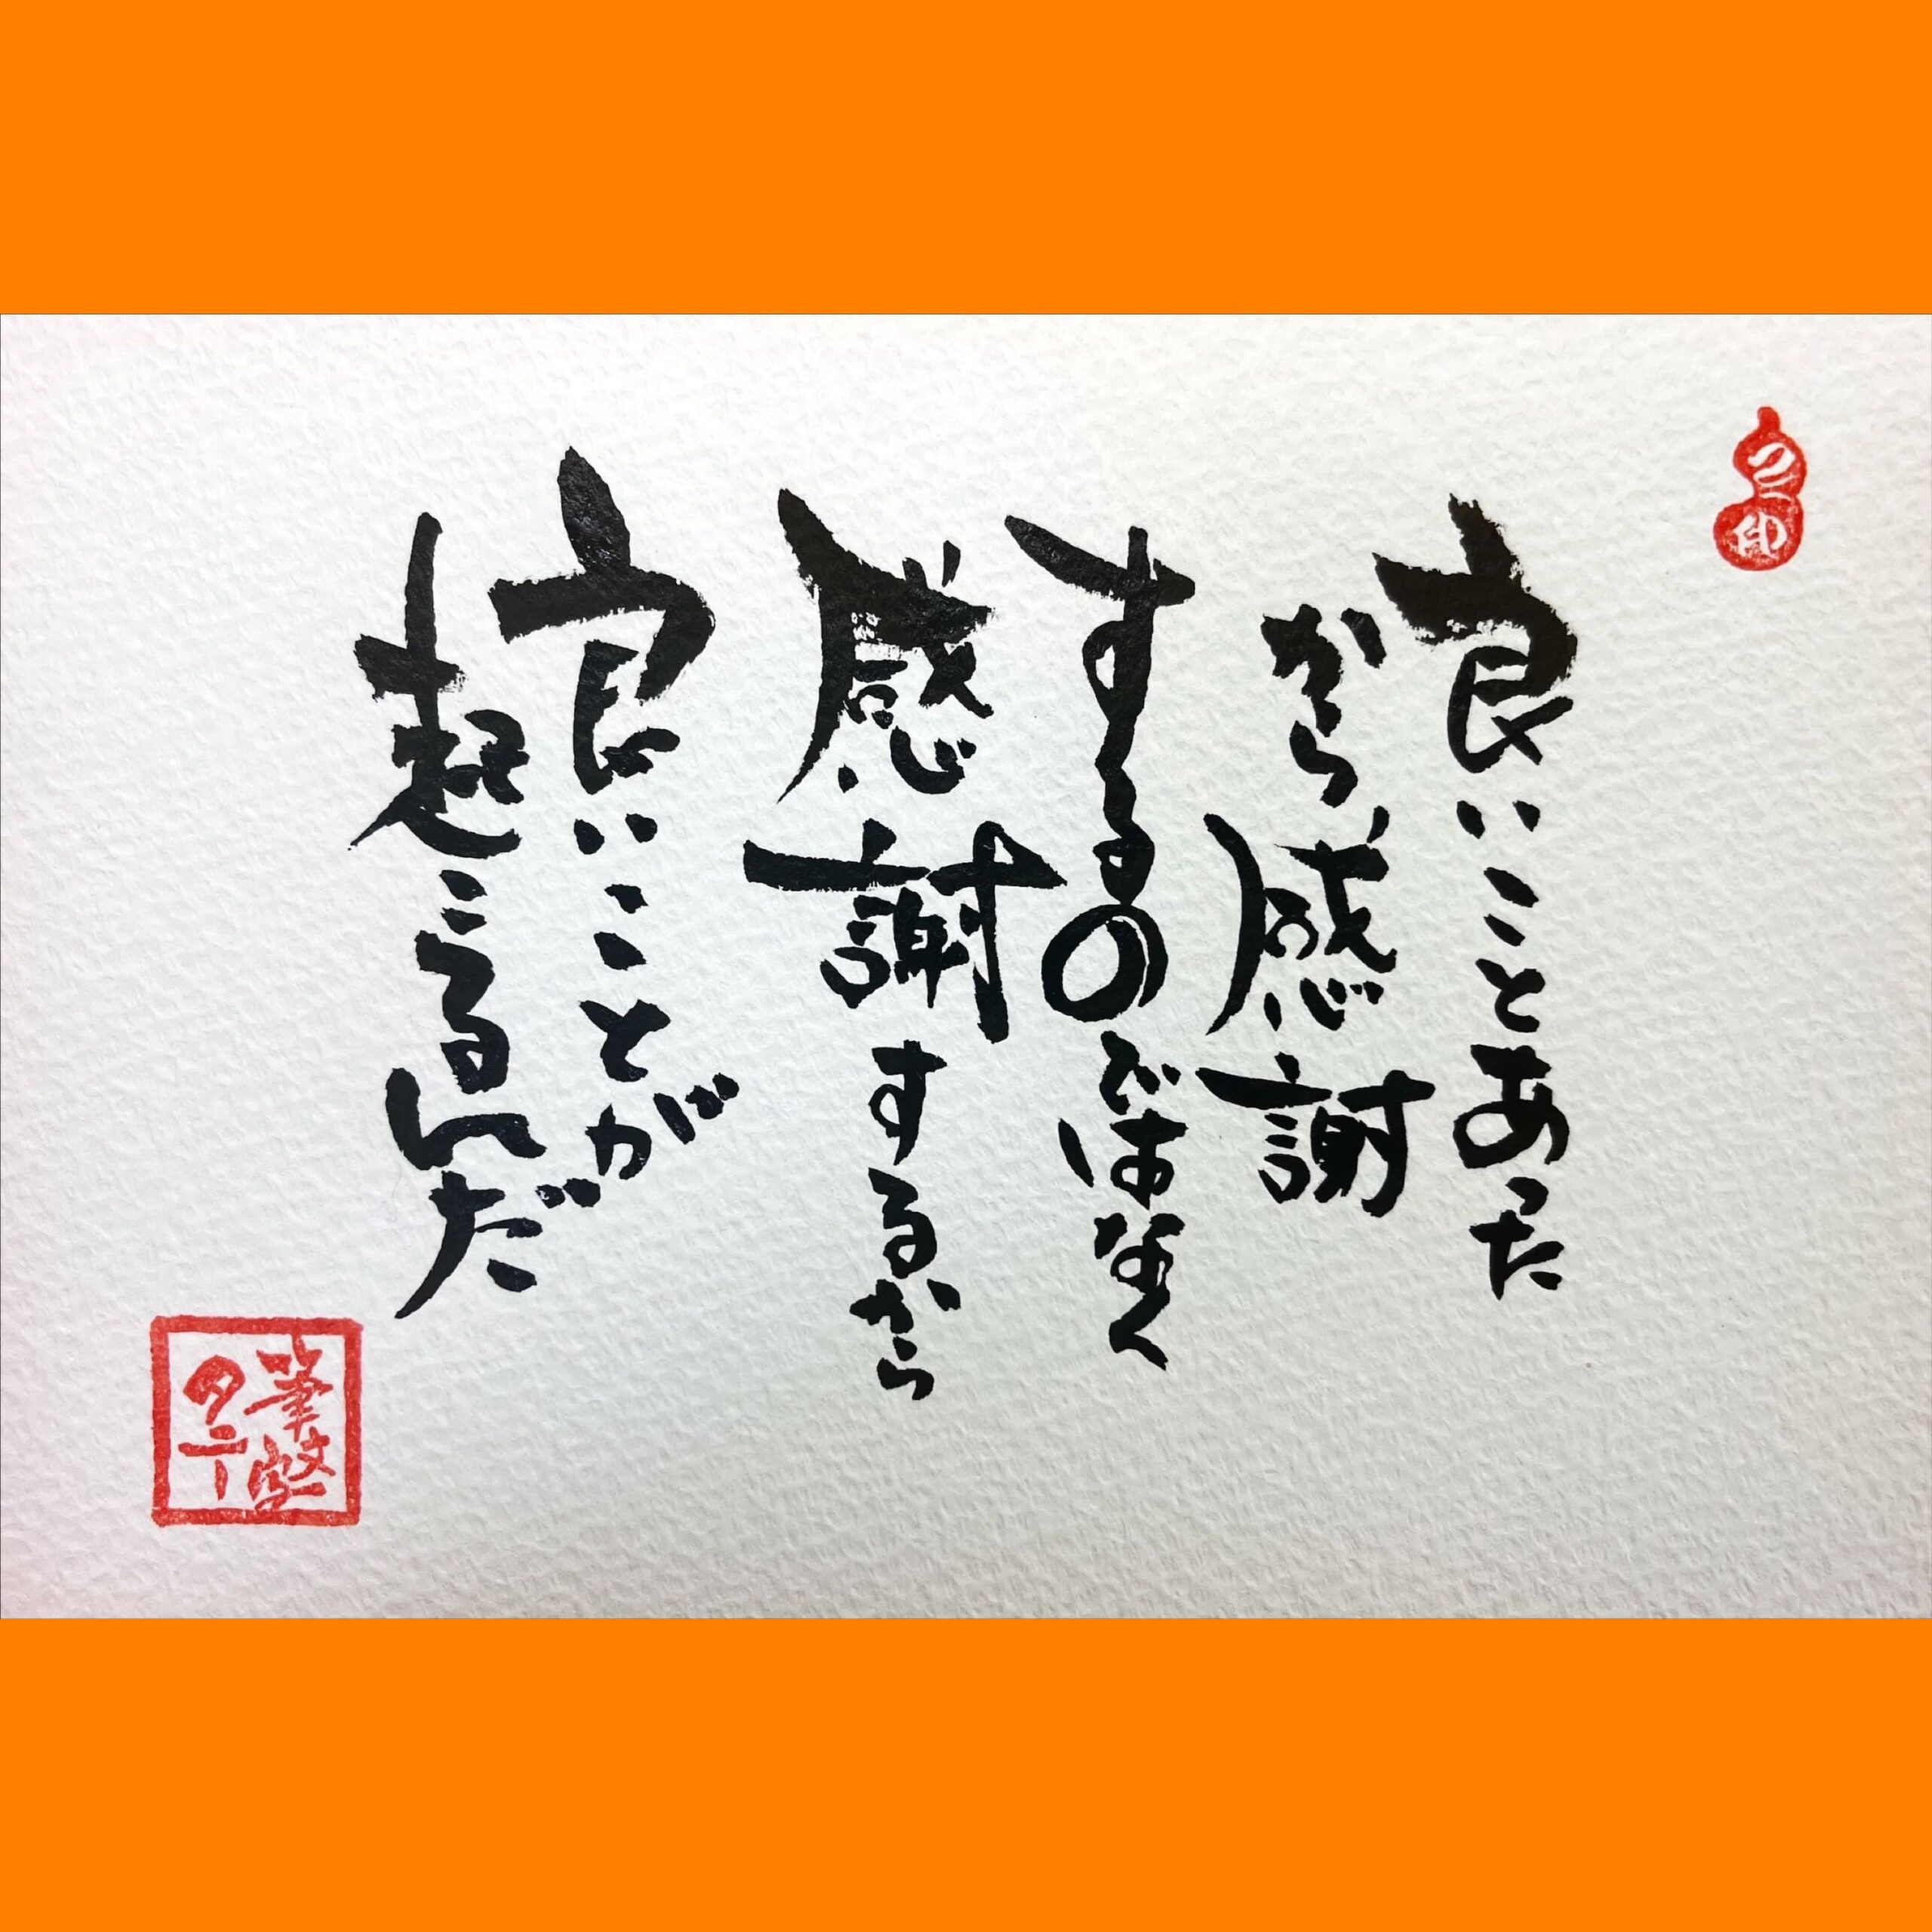 良いことあった
から感謝
するのではなく
感謝するから
良いことが
起こるんだ
筆
タニー